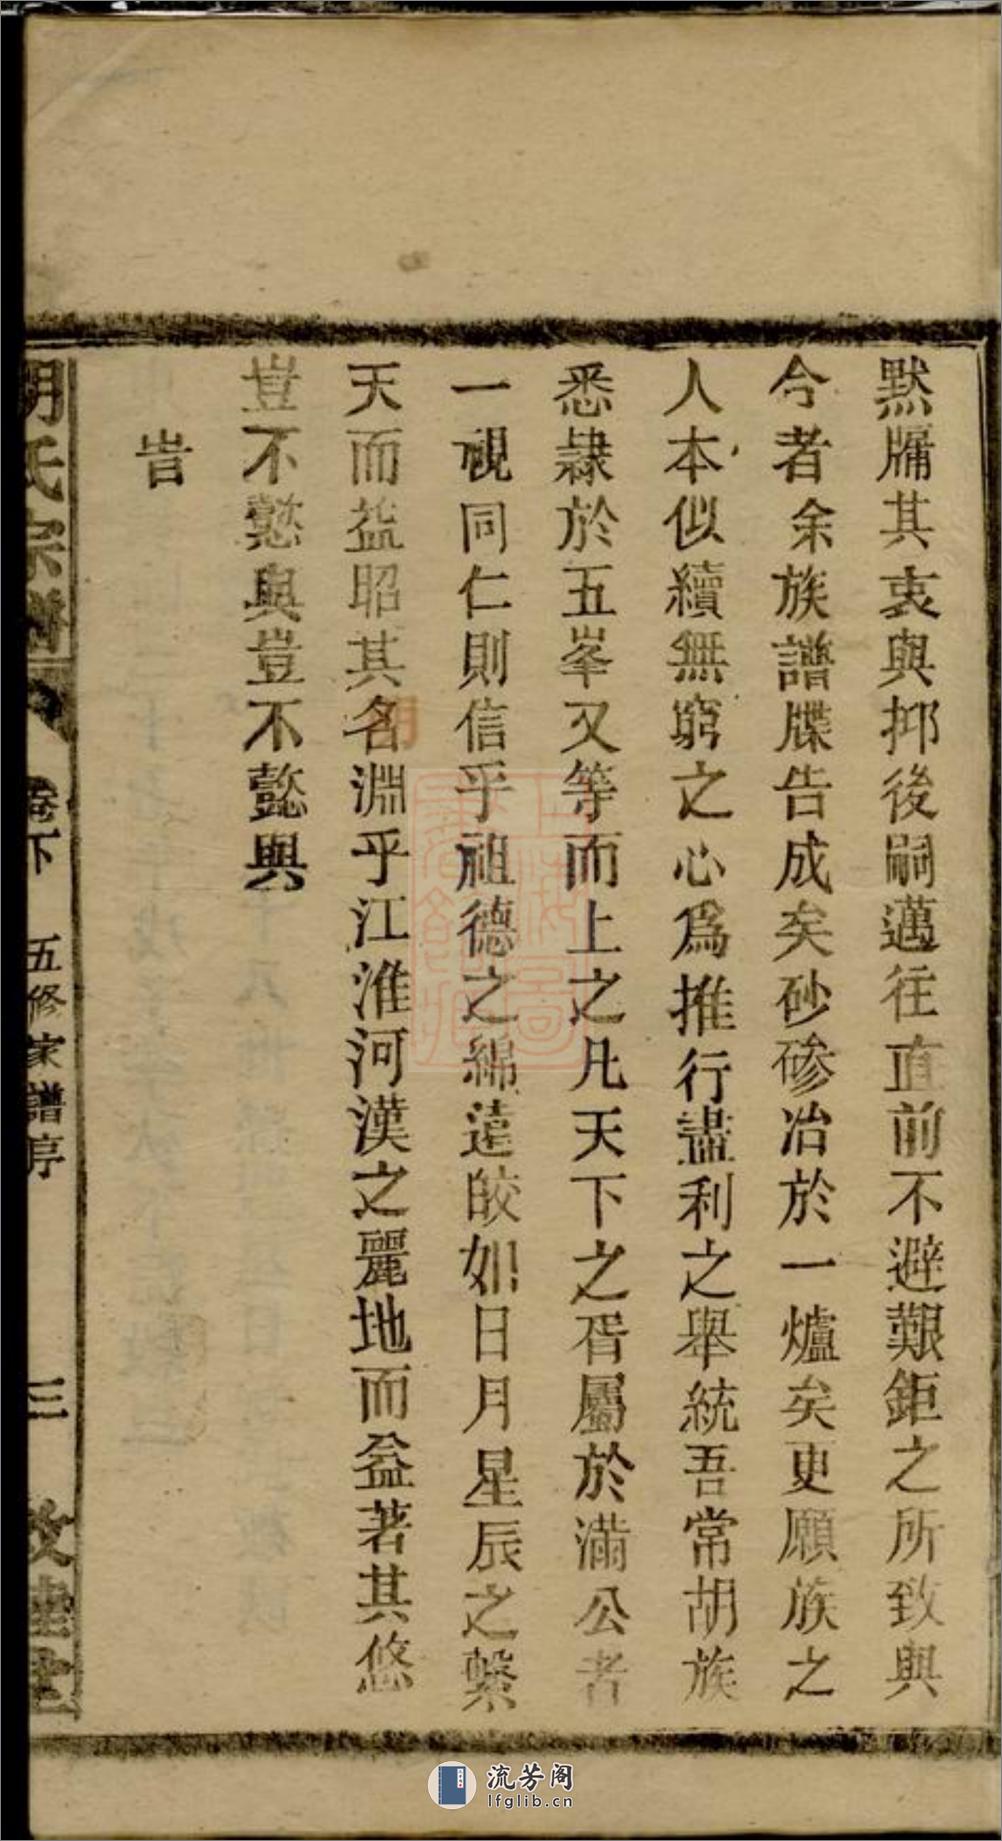 黙牗其衷與抑後嗣邁往直前不避艱鉅之所致與
今者余族譜牒告成矣砂磣冶於一爐矣更願族之
人本似續無窮之心爲推行盡利之舉統吾常胡族
悉隷於五峯又等而上之凡天下之胥屬於滿公者
一視同仁則信乎祖德之綿遠皎如日月星辰之繫
天而益昭其名淵乎江淮河漢之麗地而益著其悠
豈不懿與豈不懿與
旹
胡氏宗譜
卷下
五修家譜序
三
敦睦堂
流芳阁
lfglib.cn